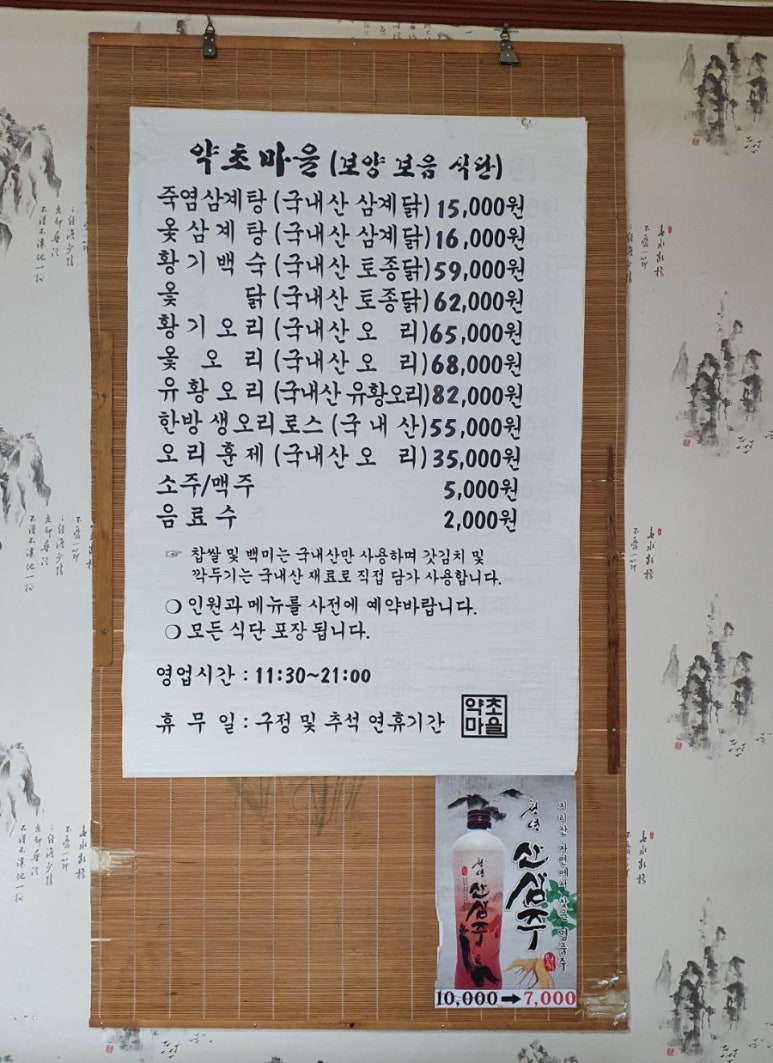 약초마을 (보양 보음 식단)
죽염삼계탕 (국내산 삼계닭) 15,000원
옻삼계탕 (국내산 삼계닭) 16,000원
황기백숙 (국내산 토종닭) 59,000원
옻 닭 (국내산 토종닭) 62,000원
황기오리 (국내산 오 리) 65,000원
옻 오 리 (국내산 오 리) 68,000원
유황오리 (국내산 유황오리) 82,000원
한방 생오리로스 (국 내 산) 55,000원
오리훈제 (국내산 오 리) 35,000원
소주/맥주 5,000원
음료수 2,000원
☞ 찹쌀 및 백미는 국내산만 사용하며 갓김치 및
깍두기는 국내산 재료로 직접 담가 사용합니다.
❍ 인원과 메뉴를 사전에 예약바랍니다.
❍ 모든 식단 포장 됩니다.
영업시간 : 11:30~21:00
휴 무 일 : 구정 및 추석 연휴기간
약초
마을
천년
산삼주
지리산 자연에서 찾은 명품주
천년
산삼주
10,000 → 7,000